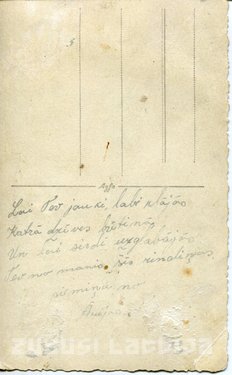 Lai Tev jauki labi klājās
Katrā dzīves brītiņā,
Un Tavā sirdī uzglabājās
Tev no manis šīs rindiņas
piemiņa no
ZUDUSI LATVIJA